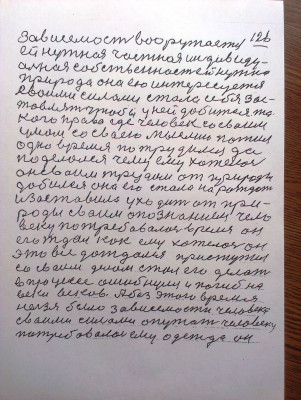 Зависемость вооружаету 126
ей нужная частная индивиду-
алная собственностей нужна
природа она ею интересуется
своими силами стало себя зас-
тавлят чтобы у ней добится та-
кого права где человек со своим
умом со своею мыслию пожил
одно время потрудился да
поделался чему ему хотелос
он своим трудом от природы
добился она его стала нарождат
и заставила уходит от при-
роды своим опознанием чело
веку потребовалос время он
его ждал как ему хотелос он
это все дождался приступил
со своим дном стал его делат
в процессе ошибнулся и погиб на
веки веков. А без этого время
нелзя было зависемости человека
своими силами опутат человеку
потребовалос ему одежда он